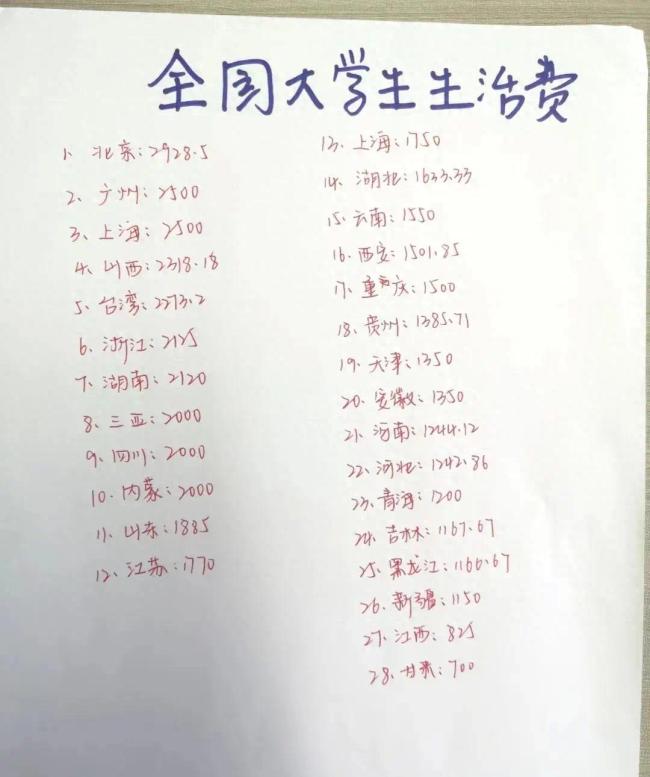 全国大学生生活费
1、北京:2928.5
2、广州:2500
3、上海:2500
4、山西:2318.18
5、台湾:2273.2
6、浙江:2125
7、湖南:2120
8、三亚:2000
9、四川:2000
10、内蒙:2000
11、山东:1885
12、江苏:1770
13、上海:1750
14、湖北:1633.33
15、云南:1550
16、西安:1501.85
17、重庆:1500
18、贵州:1385.71
19、天津:1350
20、安徽:1350
21、河南:1244.12
22、河北:1242.86
23、青海:1200
24、吉林:1167.67
25、黑龙江:1166.67
26、新疆:1150
27、江西:825
28、甘肃:700